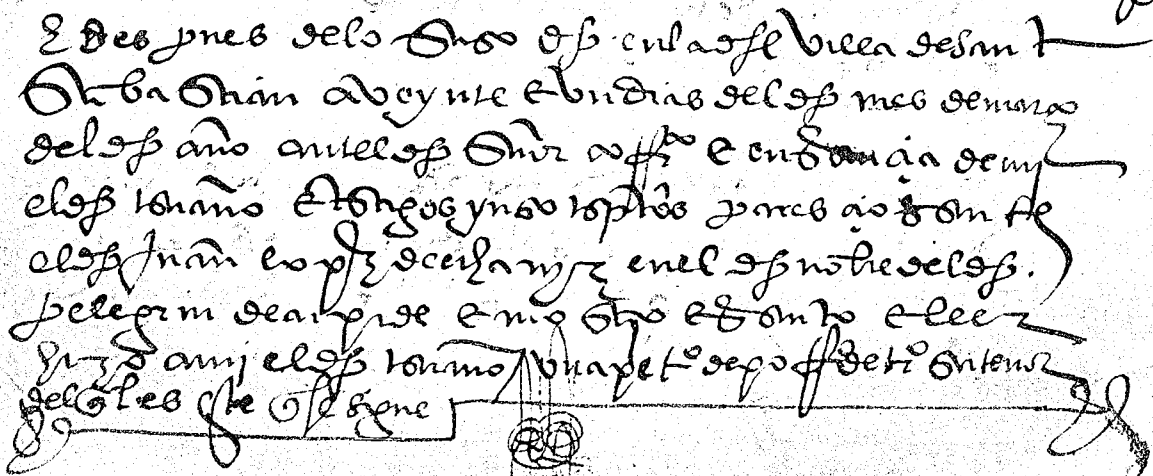 E despues delo suso dho en la dha villa de san
Sebastian a veynte e vn dias del dho mes de março
del dho año ante el dho Señor e en presençia de mi
el dho escriuano e testigos yuso escriptos paresçio presente
el dho Juan lopez de en el dho nonbre del dho
pelegrin de e mostro e presento e leer
hizo a mi el dho escriuano vna pet° de su tenor
del qual es este que se sigue